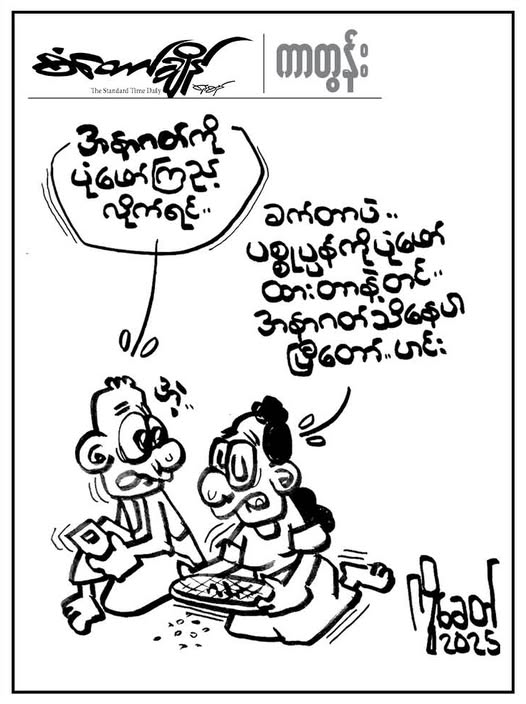 စံတော်ချိန်
The Standard Time Daily
ကာတွန်း
အနာဂတ်ကို
ပုံဖော်ကြည့်
လိုက်ရင်..
ခက်တာပဲ..
ပစ္စုပ္ပန်ကိုပုံဖော်
ထားတာနဲ့တင်..
အနာဂတ်သိနေပါ
ပြီတော်..ဟင်း
ဟဲ့
2025